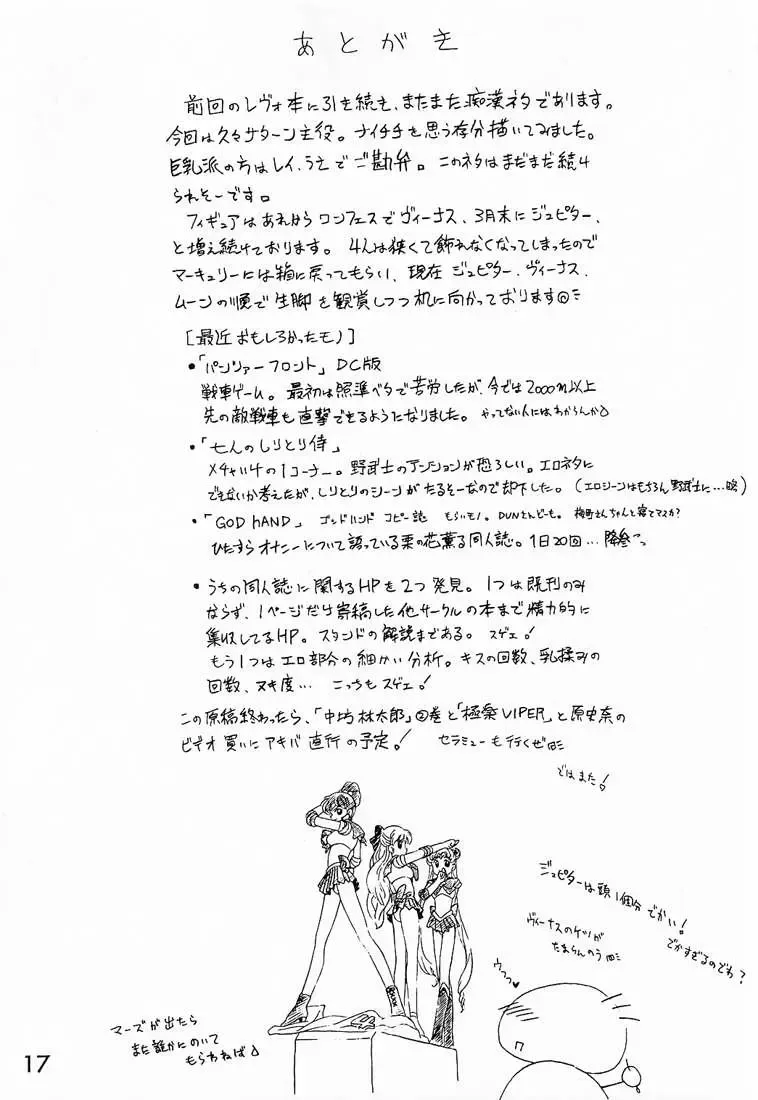 あとがき
前回のレヴォ本に引き続き、またまた痴漢ネタであります。
今回は久々サターン主役。ナイチチを思う存分描いてみました。
巨乳派の方はレイ、うえでご勘弁。このネタはまだまだ続け
られそーです。
フィギュアはあれからワンフェスでヴィーナス、3月末にジュピター、
と増え続けております。4人は狭くて飾れなくなってしまったので
マーキュリーには箱に戻ってもらい、現在ジュピター、ヴィーナス、
ムーンの順で生脚を観賞しつつ机に向かっております
[最近おもしろかったモノ]
・「パンツァーフロント」DC版
戦車ゲーム。最初は照準ベタで苦労したが、今では2000m以上
先の敵戦車も直撃できるようになりました。やってない人にはわからんか
・「七人のしりとり侍」
メチャイケの1コーナー。野武士のテンションが恐ろしい。エロネタに
できないか考えたが、しりとりのシーンがたるそーなので却下した。(エロシーンはもちろん野武士に…略)
・「GOD HAND」 ゴッドハンド コピー誌 もらいモノ。DUNさんどーも。梅野さんちゃんと寝てマスカ?
ひたすらオナニーについて語っている栗の花薫る同人誌。1日20回…降参
・うちの同人誌に関するHPを2つ発見。1つは既刊のみ
ならず、1ページだけ寄稿した他サークルの本まで精力的に
集収してるHP。スタンドの解説まである。スゲェ!
もう1つはエロ部分の細かい分析。キスの回数、乳揉みの
回数、ヌキ度… こっちもスゲェ!
この原稿終わったら、「中坊林太郎」②巻と「極楽VIPER」と原史奈の
ビデオ買いにアキバ直行の予定! セラミューも行くぜ
ではまた!
ジュピターは頭1個分でかい!
でかすぎるのでわ?
ヴィーナスのケツが
たまらんのう
ウっっ
マーズが出たら
また誰かにのいて
もらわねば
17